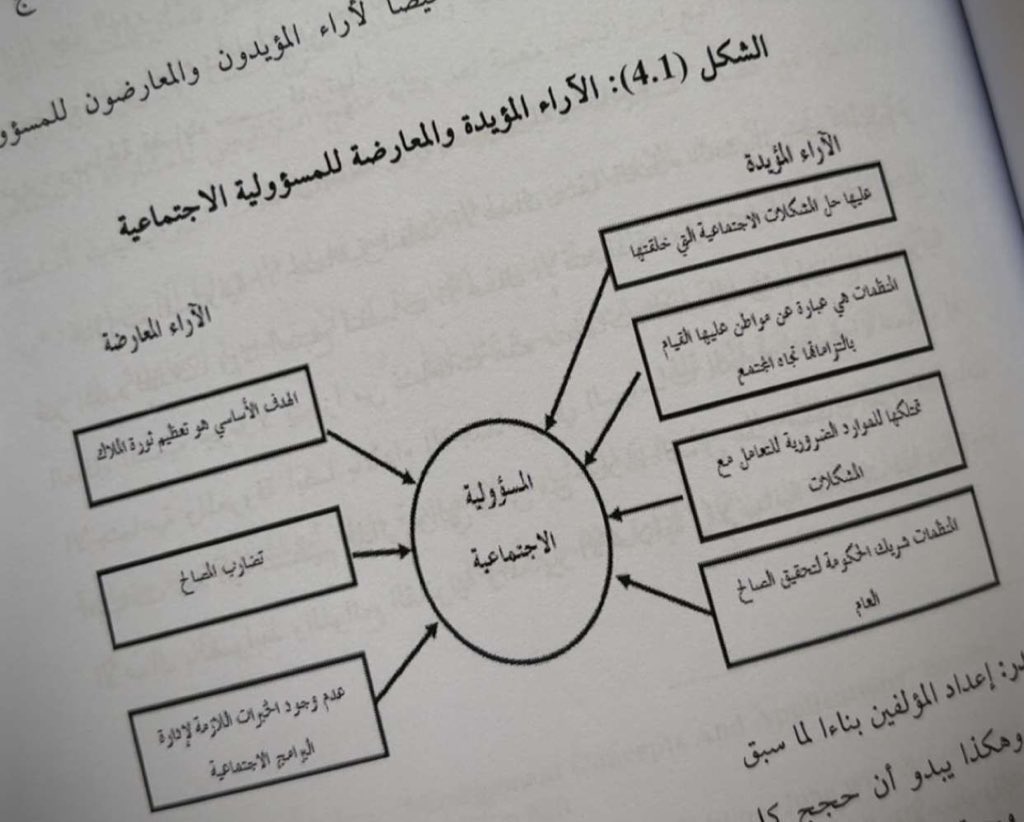 لأراء المؤيدون والمعارضون للمسؤو
الشكل (4.1): الآراء المؤيدة والمعارضة للمسؤولية الاجتماعية
الآراء المؤيدة
عليها حل المشكلات الاجتماعية التي خلقتها
المنظمات هي عبارة عن مواطن عليها القيام
بالتزاماتها تجاه المجتمع
تمتلكها للموارد الضرورية للتعامل مع
المشكلات
المنظمات شريك الحكومة لتحقيق الصالح
العام
المسؤولية
الاجتماعية
الآراء المعارضة
الهدف الأساسي هو تعظيم ثورة الملاك
تضارب المصالح
عدم وجود الخبرات اللازمة لإدارة
البرامج الاجتماعية
در: إعداد المؤلفين بناءا لما سبق
وهكذا يبدو أن حجج كل